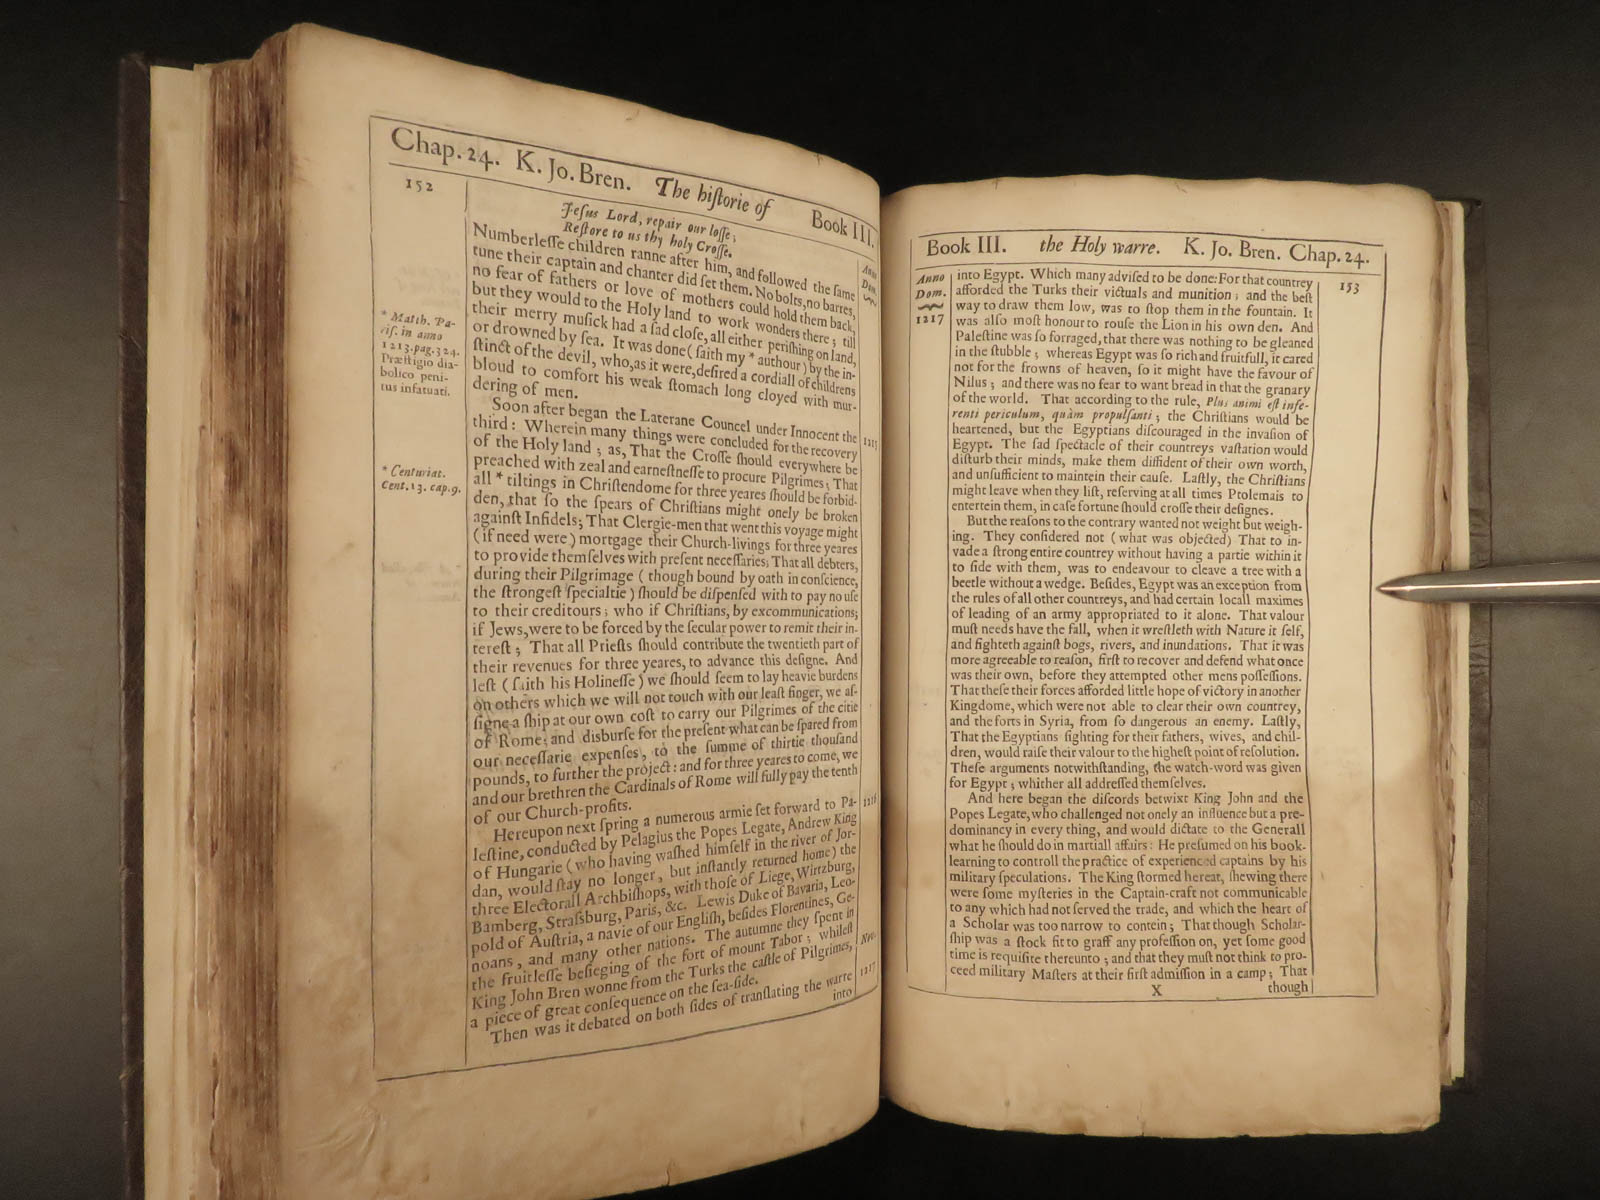 Chap. 24. K. Jo. Bren. The hiſtorie of Book III.
152
Jeſus Lord, repair our loſſe;
Reſtore to us thy holy Croſſe.
Numberleſſe children ranne after him, and followed the ſame
tune their captain and chanter did ſet them. No bolts, no barres,
no fear of fathers or love of mothers could hold them back,
but they would to the Holy land to work wonders there; till
their merry muſick had a ſad cloſe, all either periſhing on land,
or drowned by ſea. It was done (ſaith my * authour) by the in-
ſtinct of the devil, who, as it were, deſired a cordiall of childrens
bloud to comfort his weak ſtomach long cloyed with mur-
dering of men.
Soon after began the Laterane Councel under Innocent the
third: Wherein many things were concluded for the recovery
of the Holy land; as, That the Croſſe ſhould everywhere be
preached with zeal and earneſtneſſe to procure Pilgrimes; That
all * tiltings in Chriſtendome for three yeares ſhould be forbid-
den, that ſo the ſpears of Chriſtians might onely be broken
againſt Infidels; That Clergie-men that went this voyage might
(if need were) mortgage their Church-livings for three yeares
to provide themſelves with preſent neceſſaries; That all debters,
during their Pilgrimage (though bound by oath in conſcience,
the ſtrongeſt ſpecialtie) ſhould be diſpenſed with to pay no uſe
to their creditours; who if Chriſtians, by excommunications;
if Jews, were to be forced by the ſecular power to remit their in-
tereſt; That all Prieſts ſhould contribute the twentieth part of
their revenues for three yeares, to advance this deſigne. And
leſt (ſaith his Holineſſe) we ſhould ſeem to lay heavie burdens
on others which we will not touch with our leaſt finger, we aſ-
ſigne a ſhip at our own coſt to carry our Pilgrimes of the citie
of Rome; and disburſe for the preſent what can be ſpared from
our neceſſarie expenſes, to the ſumme of thirtie thouſand
pounds, to further the project: and for three yeares to come, we
and our brethren the Cardinals of Rome will fully pay the tenth
of our Church-profits.
Hereupon next ſpring a numerous armie ſet forward to Pa-
leſtine, conducted by Pelagius the Popes Legate, Andrew King
of Hungarie (who having waſhed himſelf in the river of Jor-
dan, would ſtay no longer, but inſtantly returned home) the
three Electorall Archbiſhops, with thoſe of Liege, Wirtzburg,
Bamberg, Straſsburg, Paris, &c. Lewis Duke of Bavaria, Leo-
pold of Auſtria, a navie of our Engliſh, beſides Florentines, Ge-
noans, and many other nations. The autumne they ſpent in
the fruitleſſe beſieging of the fort of mount Tabor; whileſt
King John Bren wonne from the Turks the caſtle of Pilgrimes,
a piece of great conſequence on the ſea-ſide.
Then was it debated on both ſides of tranſlating the warre
into
* Matth. Pa-
riſ. in anno
1213. pag. 324.
Præſtigio dia-
bolico peni-
tus infatuati.
* Centuriat.
Cent. 13. cap. 9.
Anno
Dom.
1215
1216
Nov.
1217
Book III. the Holy warre. K. Jo. Bren. Chap. 24.
Anno
Dom.
1217
153
into Egypt. Which many adviſed to be done: For that countrey
afforded the Turks their victuals and munition; and the beſt
way to draw them low, was to ſtop them in the fountain. It
was alſo moſt honour to rouſe the Lion in his own den. And
Paleſtine was ſo forraged, that there was nothing to be gleaned
in the ſtubble; whereas Egypt was ſo rich and fruitfull, it cared
not for the frowns of heaven, ſo it might have the favour of
Nilus; and there was no fear to want bread in that the granary
of the world. That according to the rule, Plus animi eſt infe-
renti periculum, quàm propulſanti; the Chriſtians would be
heartened, but the Egyptians diſcouraged in the invaſion of
Egypt. The ſad ſpectacle of their countreys vaſtation would
diſturb their minds, make them diffident of their own worth,
and unſufficient to maintein their cauſe. Laſtly, the Chriſtians
might leave when they liſt, reſerving at all times Ptolemais to
entertein them, in caſe fortune ſhould croſſe their deſignes.
But the reaſons to the contrary wanted not weight but weigh-
ing. They conſidered not (what was objected) That to in-
vade a ſtrong entire countrey without having a partie within it
to ſide with them, was to endeavour to cleave a tree with a
beetle without a wedge. Beſides, Egypt was an exception from
the rules of all other countreys, and had certain locall maximes
of leading of an army appropriated to it alone. That valour
muſt needs have the fall, when it wreſtleth with Nature it ſelf,
and fighteth againſt bogs, rivers, and inundations. That it was
more agreeable to reaſon, firſt to recover and defend what once
was their own, before they attempted other mens poſſeſſions.
That theſe their forces afforded little hope of victory in another
Kingdome, which were not able to clear their own countrey,
and the forts in Syria, from ſo dangerous an enemy. Laſtly,
That the Egyptians fighting for their fathers, wives, and chil-
dren, would raiſe their valour to the higheſt point of reſolution.
Theſe arguments notwithſtanding, the watch-word was given
for Egypt; whither all addreſſed themſelves.
And here began the diſcords betwixt King John and the
Popes Legate, who challenged not onely an influence but a pre-
dominancy in every thing, and would dictate to the Generall
what he ſhould do in martiall affairs: He preſumed on his book-
learning to controll the practice of experienced captains by his
military ſpeculations. The King ſtormed hereat, ſhewing there
were ſome myſteries in the Captain-craft not communicable
to any which had not ſerved the trade, and which the heart of
a Scholar was too narrow to contein; That though Scholar-
ſhip was a ſtock fit to graff any profeſſion on, yet ſome good
time is requiſite thereunto; and that they muſt not think to pro-
ceed military Maſters at their firſt admiſſion in a camp; That
X though